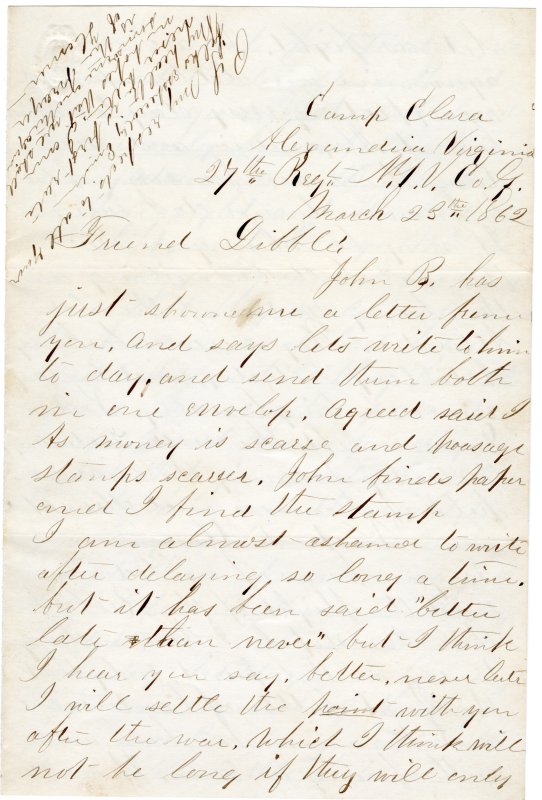 Camp Clara
Alexandria Virginia
27th Regt N.Y.V. Co. G.
March 23th 1862
Friend Dibble,
John B. has
just showned me a letter from
you, and says lets write to him
to day, and send them both
in one envelop, agreed said I
As money is scarse and poasage
stamps scarser. John finds paper
and I find the stamp
I am almost ashamed to write
after delaying so long a time.
but it has been said "better
late than never" but I think
I hear you say, better, never late
I will settle the point with you
after the war, which I think will
not be long if they will only